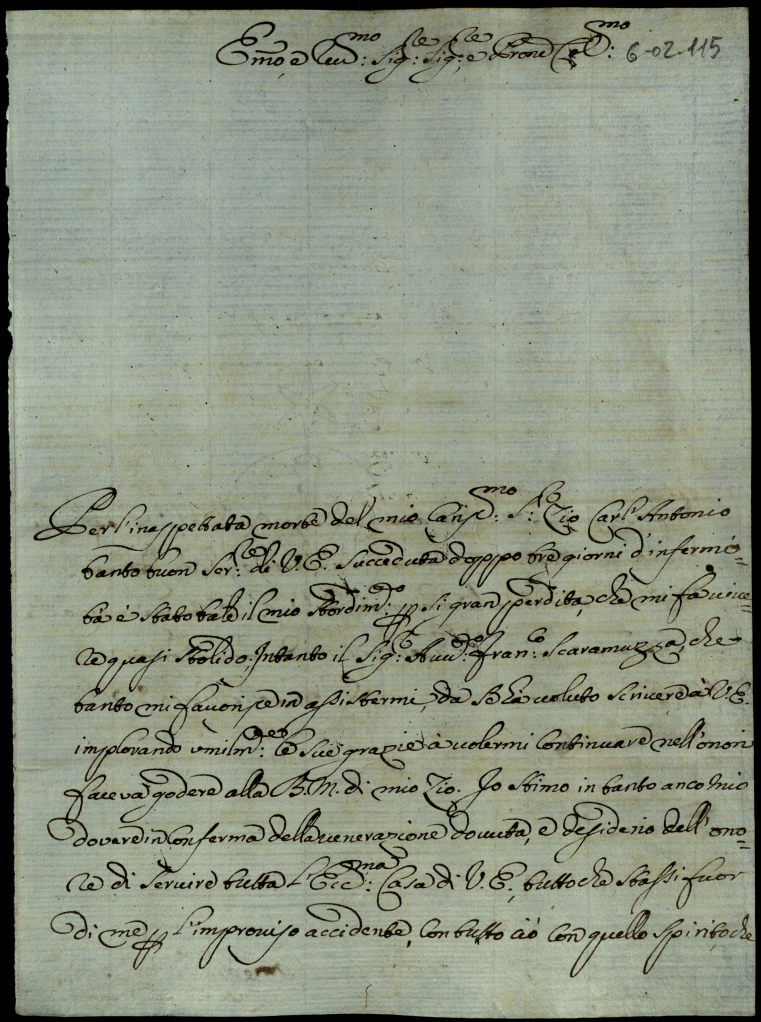 Emo, e Reu:mo Sig:re Sig:re, e Prone Col:mo 6-02-115
Per l'inaspettata morte del mio Caris:mo S:r Zio Carl'Antonio
tanto buon Ser:re di V.E. succeduta doppo tre giorni d'infermi=
tà è stato tale il mio stordim:to p si gran perdita, che mi fà viue=
re quasi stolido. Intanto il Sig:r Auu:to Fran:co Scaramuzza, che
tanto mi fauorisce in assistermi, da se hà voluto scriuere à V.E.
implorando vmilm:te le sue grazie à volermi continuare nell'onori
faceva godere alla B.M. di mio Zio. Io stimo in tanto anco mio
dovere in conferma della venerazione douuta, e desiderio dell'ono=
re di seruire tutta l'Ecc:ma Casa di V.E., tutto che stassi fuor
di me p l'improuiso accidente, con tutto ciò con quello spirito che